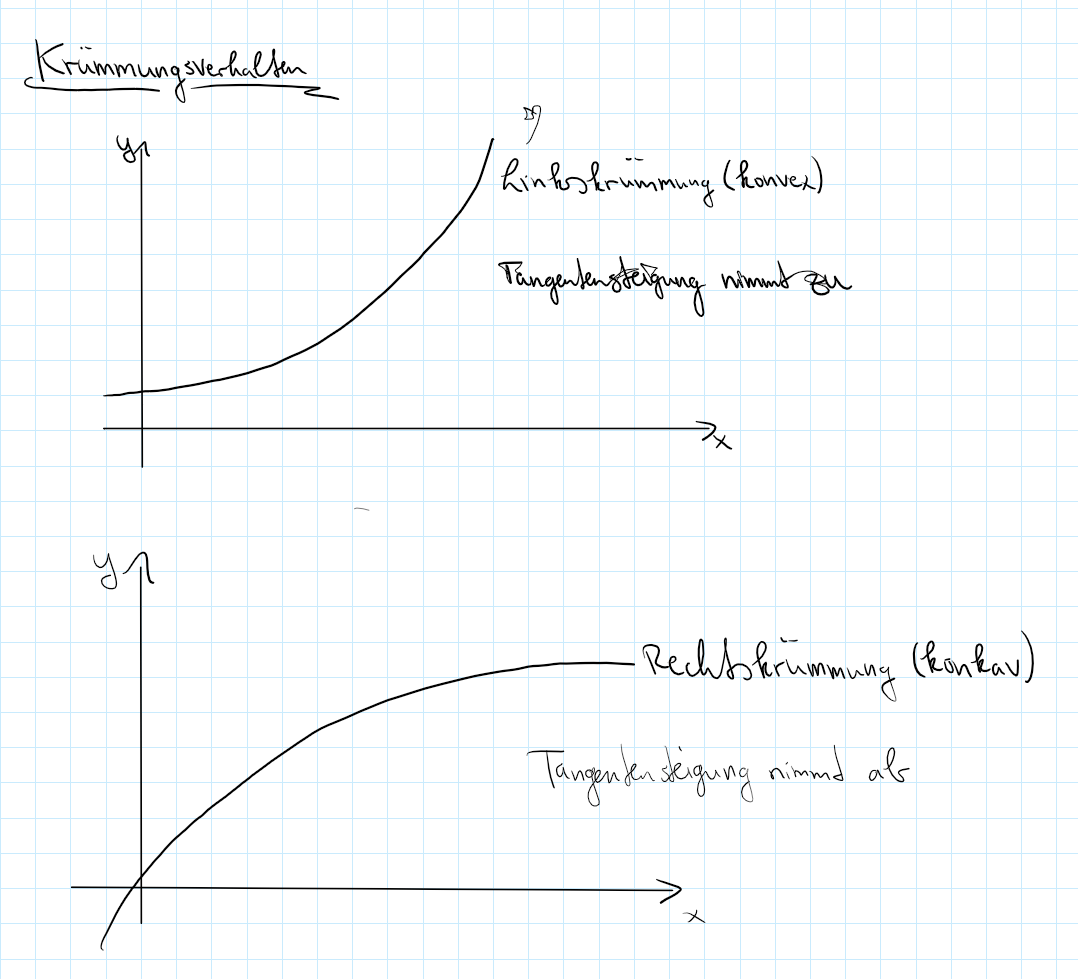 Krümmungsverhalten
y
Linkskrümmung (konvex)
Tangentensteigung nimmt zu
x
y
Rechtskrümmung (konkav)
Tangentensteigung nimmt ab
x